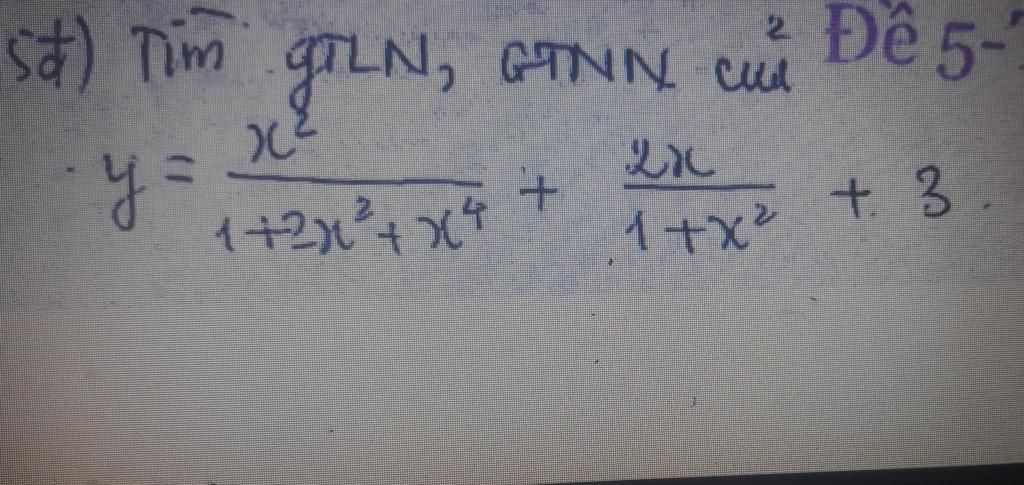 5đ) Tìm GTLN, GTNN của Đề 5-
y = x²/(1+2x²+x⁴) + 2x/(1+x²) + 3.